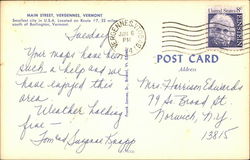 MAIN STREET, VERGENNES, VERMONT
Smallest city in U.S.A. Located on Route 17, 22
south of Burlington, Vermont.
VERGENNES
JUN 6
PM
Tuesday
Your maps have been
such a help and we
have enjoyed this
area.
Weather holding
fine —
Tom and Suzanne Knapp
POST CARD
Address
Mrs. Harrison Edwards
79 So. Broad St.
Norwich, N.Y.
13815